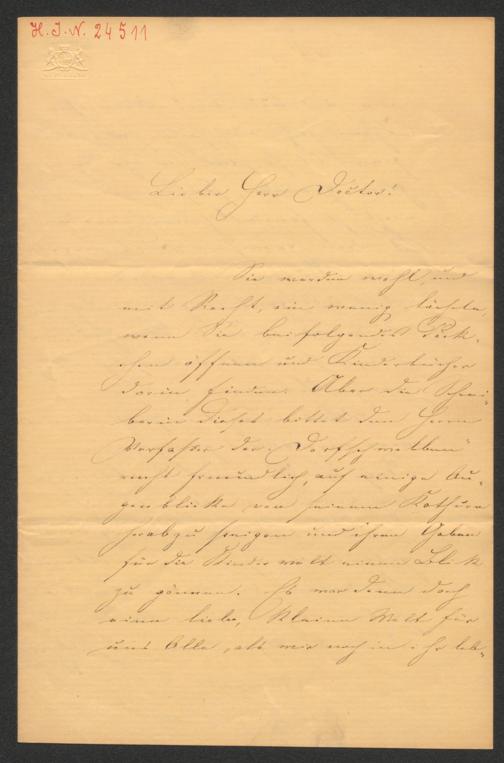 H. I. N. 24511
Lieber Herr Doctor!
Sie werden wohl, und
mit Recht, ein wenig lächeln,
wenn Sie beifolgendes Päck-
chen öffnen und Kinderbücher
darin finden. Aber die Schrei-
berin dieses bittet den Herrn
Verfasser der „Dorfschwalben"
recht freundlich, auf einige Au-
genblicke von seinem Kothurn
herabzusteigen und ihren Gaben
für die Kinderwelt einen Blick
zu gönnen. Es war denn doch
eine liebe, kleine Welt für
uns Alle, als wir noch in ihr leb-